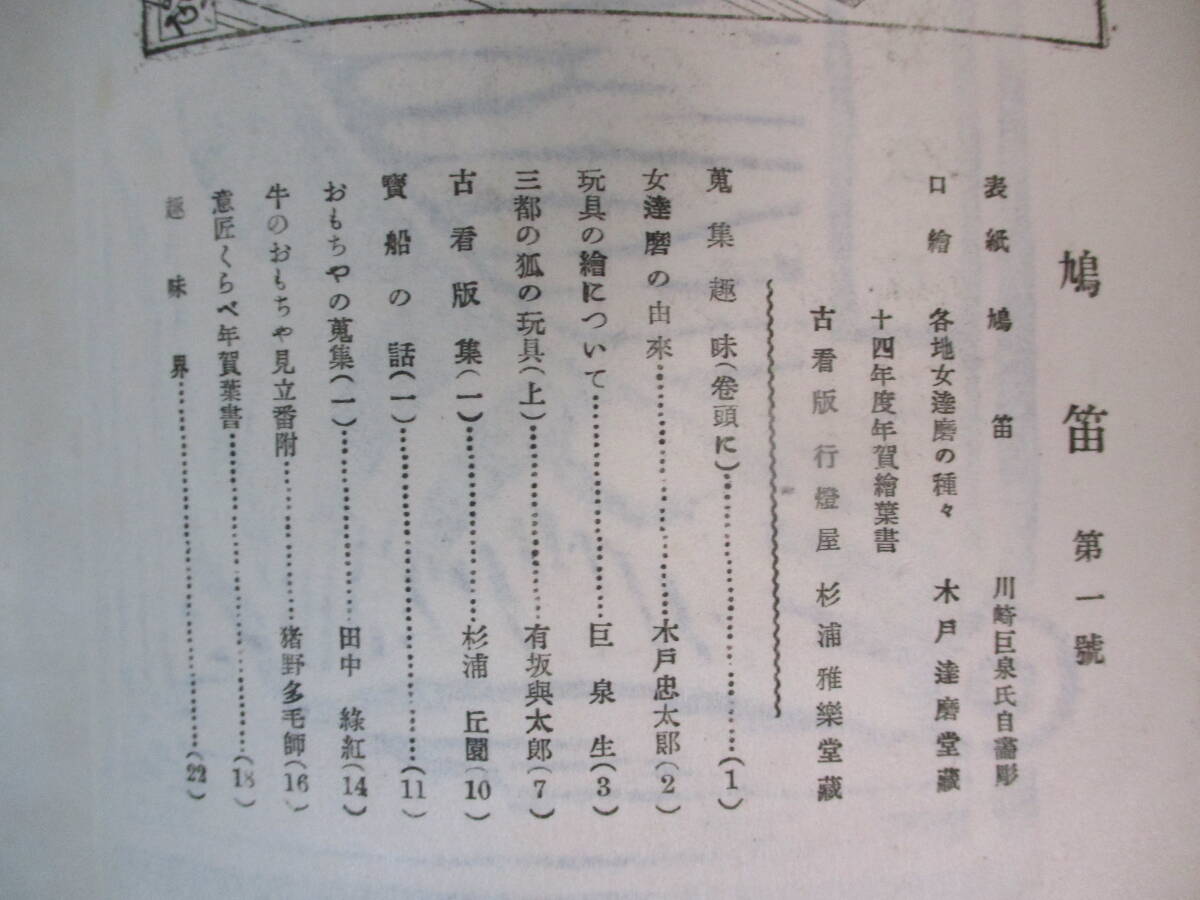 鳩笛 第一號
表紙 鳩笛 川崎巨泉氏自畫彫
口繪 各地女達磨の種々 木戸達磨堂藏
十四年度年賀繪葉書
古看版 行燈屋 杉浦雅樂堂藏
蒐集趣味(卷頭に)…………(1)
女達磨の由來…………木戸忠太郞(2)
玩具の繪について…………巨泉生(3)
三都の狐の玩具(上)…………有坂與太郞(7)
古看版集(一)…………杉浦丘園(10)
寶船の話(一)…………(11)
おもちやの蒐集(一)…………田中綠紅(14)
牛のおもちや見立番附…………猪野多毛師(16)
意匠くらべ年賀葉書…………(18)
趣味界…………(22)